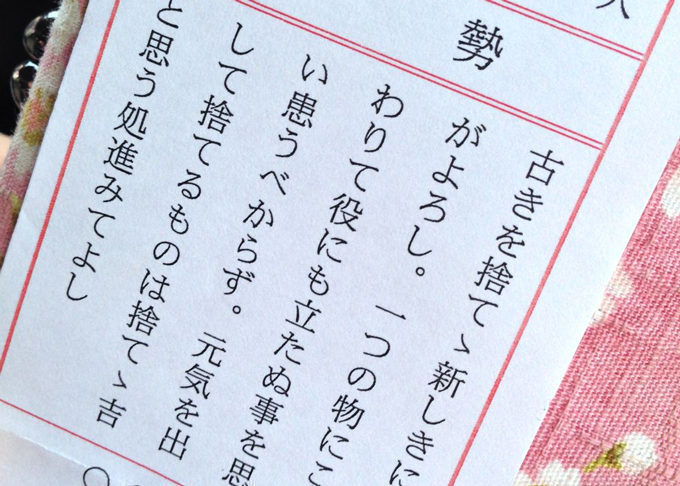 勢
古きを捨てゝ新しきに
がよろし。一つの物にこ
わりて役にも立たぬ事を思
い患うべからず。元気を出
して捨てるものは捨てゝ吉
と思う処進みてよし